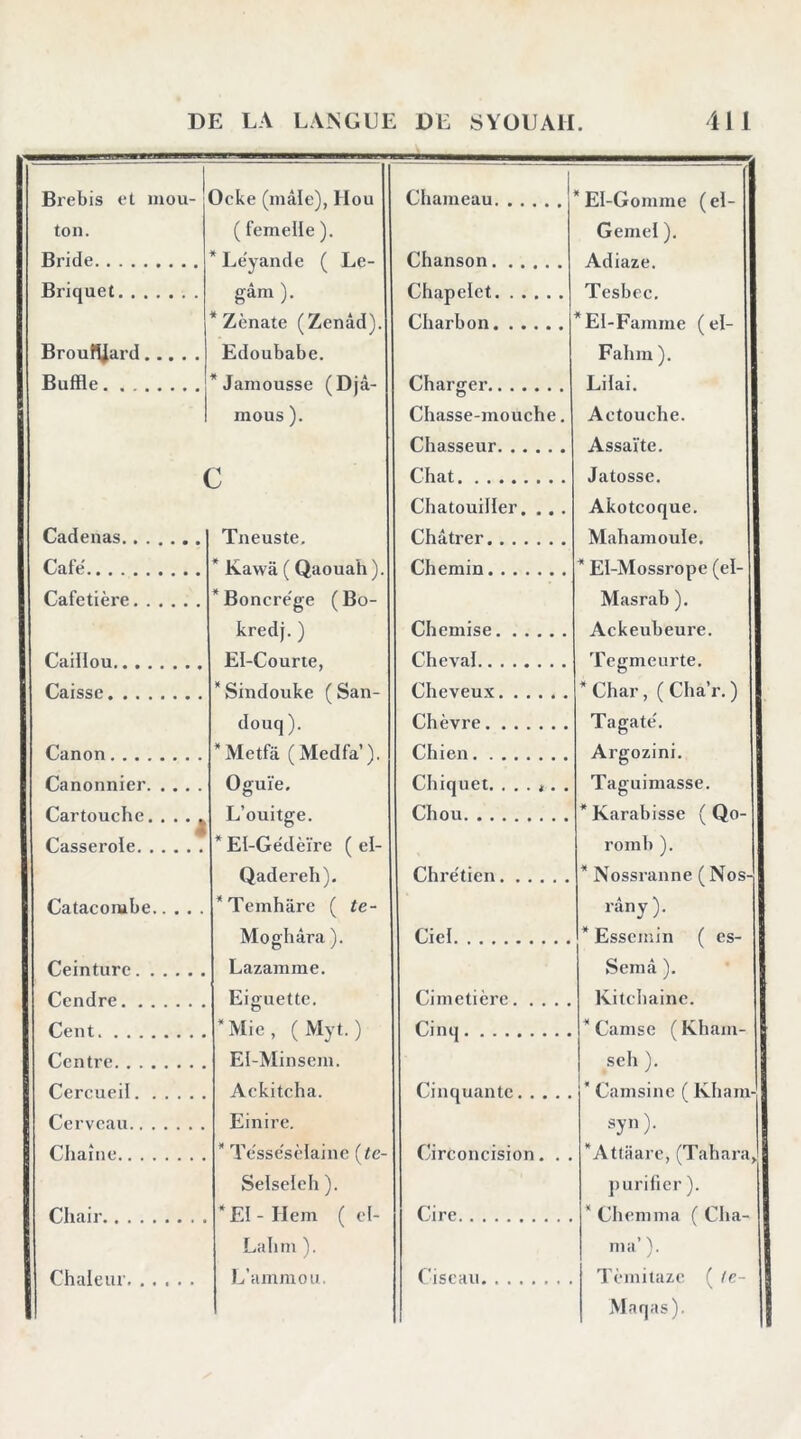 DE LA LANGUE DE SYOUAH. 411
Brebis et mou- Ocke (mâle), Hou
ton. (femelle).
Bride......... *Léyande ( Le-
Briquet....... gâm ).
*Zènate (Zenâd).
Brouillard..... Edoubabe.
Buffle......... *Jamousse (Djâ-
mous ).
C
Cadenas....... Tneuste.
Café.......... *Kawä ( Qaouah ).
Cafetière...... *Boncrége (Bo-
kredj. )
Caillou........ El-Courte,
Caisse......... *Sindouke (San-
douq).
Canon......... *Metfä (Medfa').
Canonnier..... Oguïe.
Cartouche..... L'ouitge.
Casserole...... *El-Gédèïre ( el-
Qadereh).
Catacombe..... *Temhäre ( te-
Moghâra ).
Ceinture...... Lazamme.
Cendre........ Eiguette.
Cent.......... *Mie, ( Myt. )
Centre........ El-Minsem.
Cercueil....... Ackitcha.
Cerveau....... Einire.
Chaîne........ *Tésésèlaine (te-
Selseleh ).
Chair......... *El-Hem ( el-
Lahm ).
Chaleur....... L'ammou.
Chameau...... *El-Gomme (el-
Gemel ).
Chanson...... Adiaze.
Chapelet...... Tesbec.
Charbon...... *El-Famme (el-
Fahm ).
Charger....... Lilai.
Chasse-mouche. Actouche.
Chasseur...... Assaïte.
Chat.......... Jatosse.
Chatouiller.... Akotcoque.
Châtrer....... Mahamoule.
Chemin....... *El-Mossrope (el-
Masrab ).
Chemise...... Ackeubeure.
Cheval........ Tegmeurte.
Cheveux...... *Char, ( Cha'r. )
Chèvre........ Tagaté.
Chien......... Argozini.
Chiquet....... Taguimasse.
Chou......... *Karabisse ( Qo-
romb ).
Chrétien...... *Nossranne ( Nos-
râny ).
Ciel........... *Essemin ( es-
Semâ ).
Cimetière..... Kitchaine.
Cinq.......... *Camse (Kham-
seh ).
Cinquante..... *Camsine ( Kham-
syn ).
Circoncision... *Attäare, (Tahara,
purifier ).
Cire.......... *Chemma ( Cha-
ma' ).
Ciseau........ Tèmitaze ( te-
Maqas).